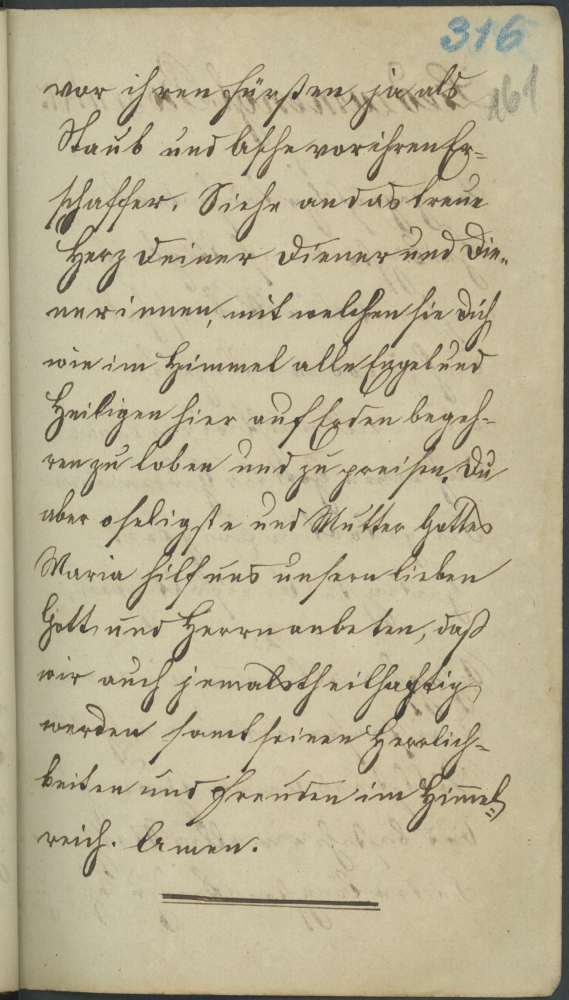 316
161
vor ihren Fürsten, ja als
Staub und Asche vor ihren Er-
schaffer. Siehe an das treue
Herz deiner Diener und Die-
nerinnen, mit welchen sie dich
wie im Himmel alle Engel und
Heiligen hier auf Erden begeh-
ren zu loben und zu preisen. Du
aber o seligste und Mutter Gottes
Maria hilf uns unsern lieben
Gott und Herrn anbeten, daß
wir auch jemals theilhaftig
werden samt seinen Herrlich-
keiten und Freuden im Himmel
reich. Amen.